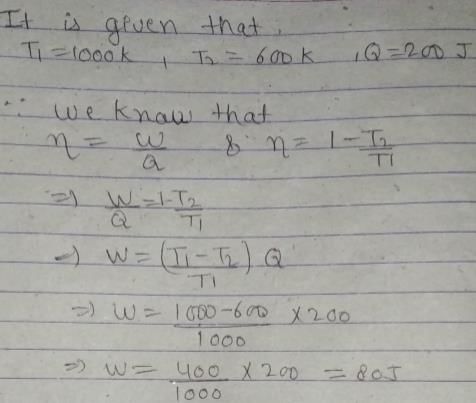 It is given that,
T1 = 1000 K , T2 = 600 K , Q = 200 J
∵ We know that
η = W/Q & η = 1 - T2/T1
⇒ W/Q = 1 - T2/T1
⇒ W = (T1 - T2 / T1) Q
⇒ W = 1000 - 600 / 1000 × 200
⇒ W = 400 / 1000 × 200 = 80 J